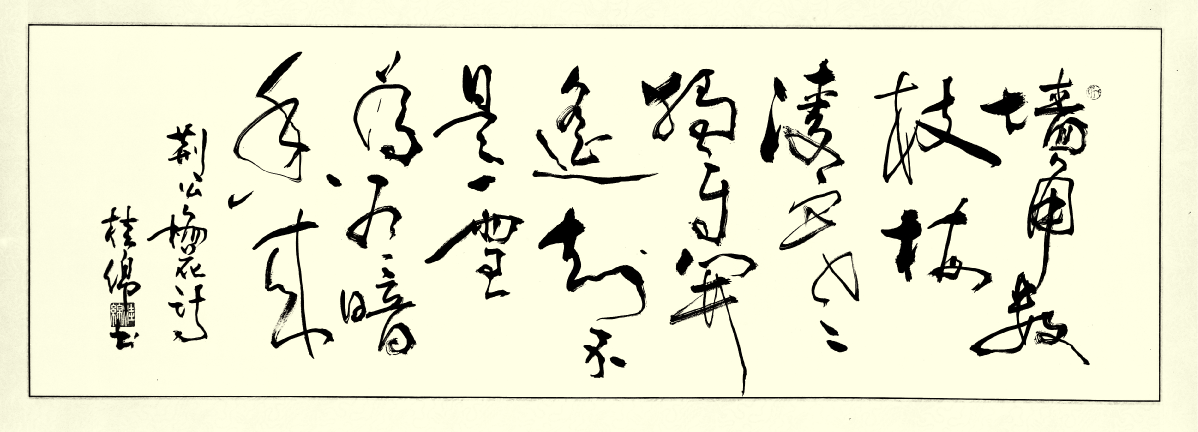 墙角数
枝梅
凌寒
獨自開
遥知不
是雪
為有暗
香来
荆公梅花诗
桂绵书